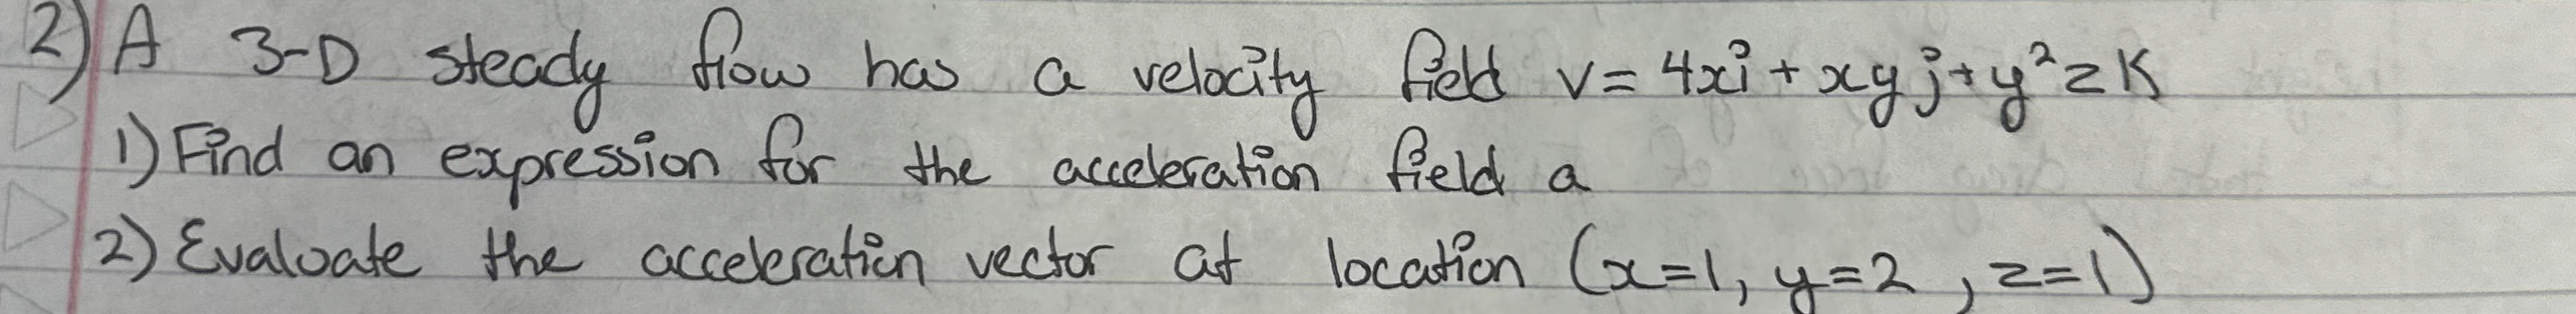 2) A 3-D steady flow has a velocity field V = 4xi + xyj + y²zK
1) Find an expression for the acceleration field a
2) Evaluate the acceleration vector at location (x=1, y=2, z=1)